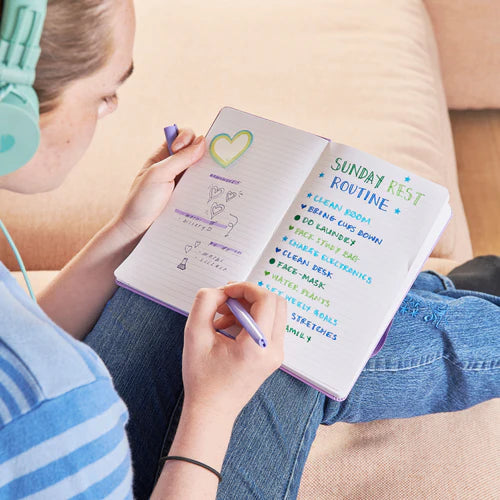 SUNDAY REST
ROUTINE
CLEAN ROOM
BRING CUPS DOWN
DO LAUNDRY
PACK STUDY BAG
CHARGE ELECTRONICS
CLEAN DESK
FACE-MASK
WATER PLANTS
SET WEEKLY GOALS
STRETCHES
FAMILY